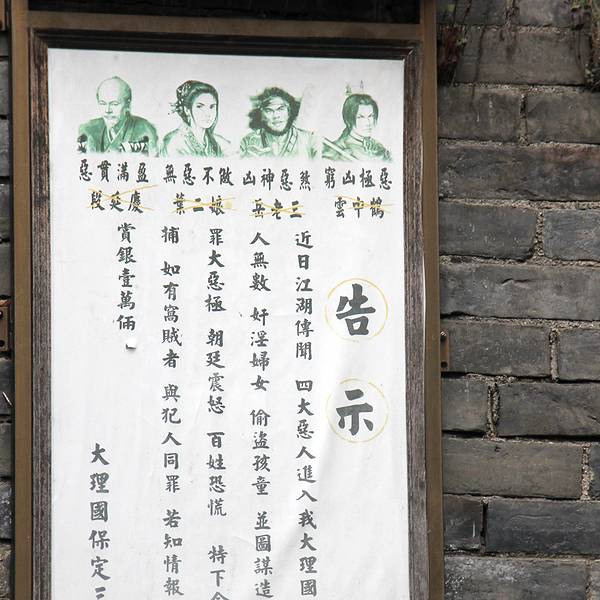 惡貫滿盈 無惡不做 凶神惡煞 窮凶極惡
段延慶 葉二娘 岳老三 雲中鶴
告示
近日江湖傳聞 四大惡人進入我大理國
人無數 奸淫婦女 偷盜孩童 並圖謀造
罪大惡極 朝廷震怒 百姓恐慌 特下令
捕 如有窩賊者 與犯人同罪 若知情報
賞銀壹萬倆
大理國保定三